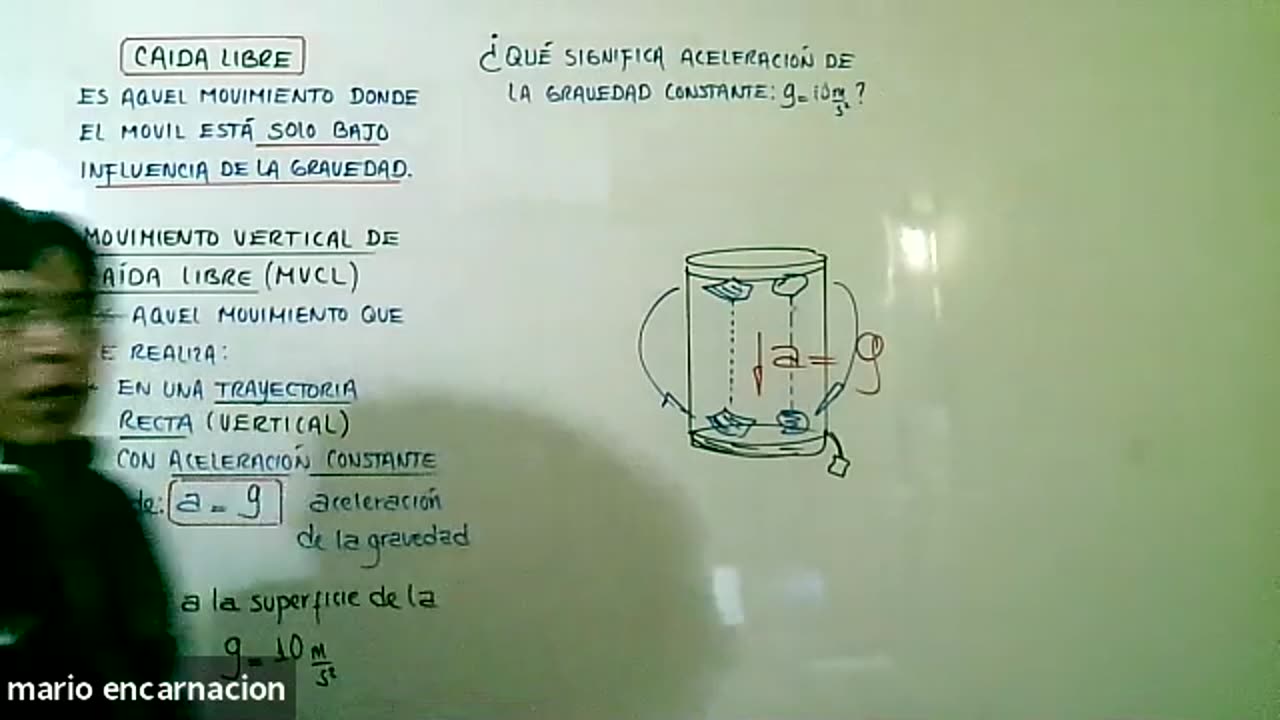 CAIDA LIBRE
ES AQUEL MOVIMIENTO DONDE
EL MOVIL ESTÁ SOLO BAJO
INFLUENCIA DE LA GRAVEDAD.
MOVIMIENTO VERTICAL DE
AÍDA LIBRE (MVCL)
AQUEL MOVIMIENTO QUE
E REALIZA:
EN UNA TRAYECTORIA
RECTA (VERTICAL)
CON ACELERACIÓN CONSTANTE
de: a = g aceleración
de la gravedad
a la superficie de la
g = 10 m/s²
¿QUÉ SIGNIFICA ACELERACIÓN DE
LA GRAVEDAD CONSTANTE: g = 10 m/s² ?
a = g
mario encarnacion